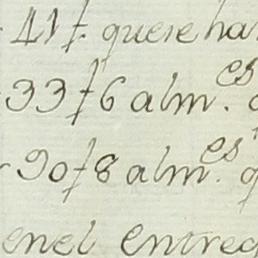 41f. que se ha
33f6 alm.es
90f8 alm.es q
en el entreg